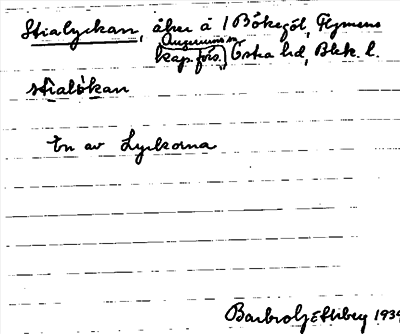 Stialyckan, åker å 1 Bökegöl, Flymens
kap. förs., Östra hd, Blek. l.
stialökan
En av Lyckorna
1934